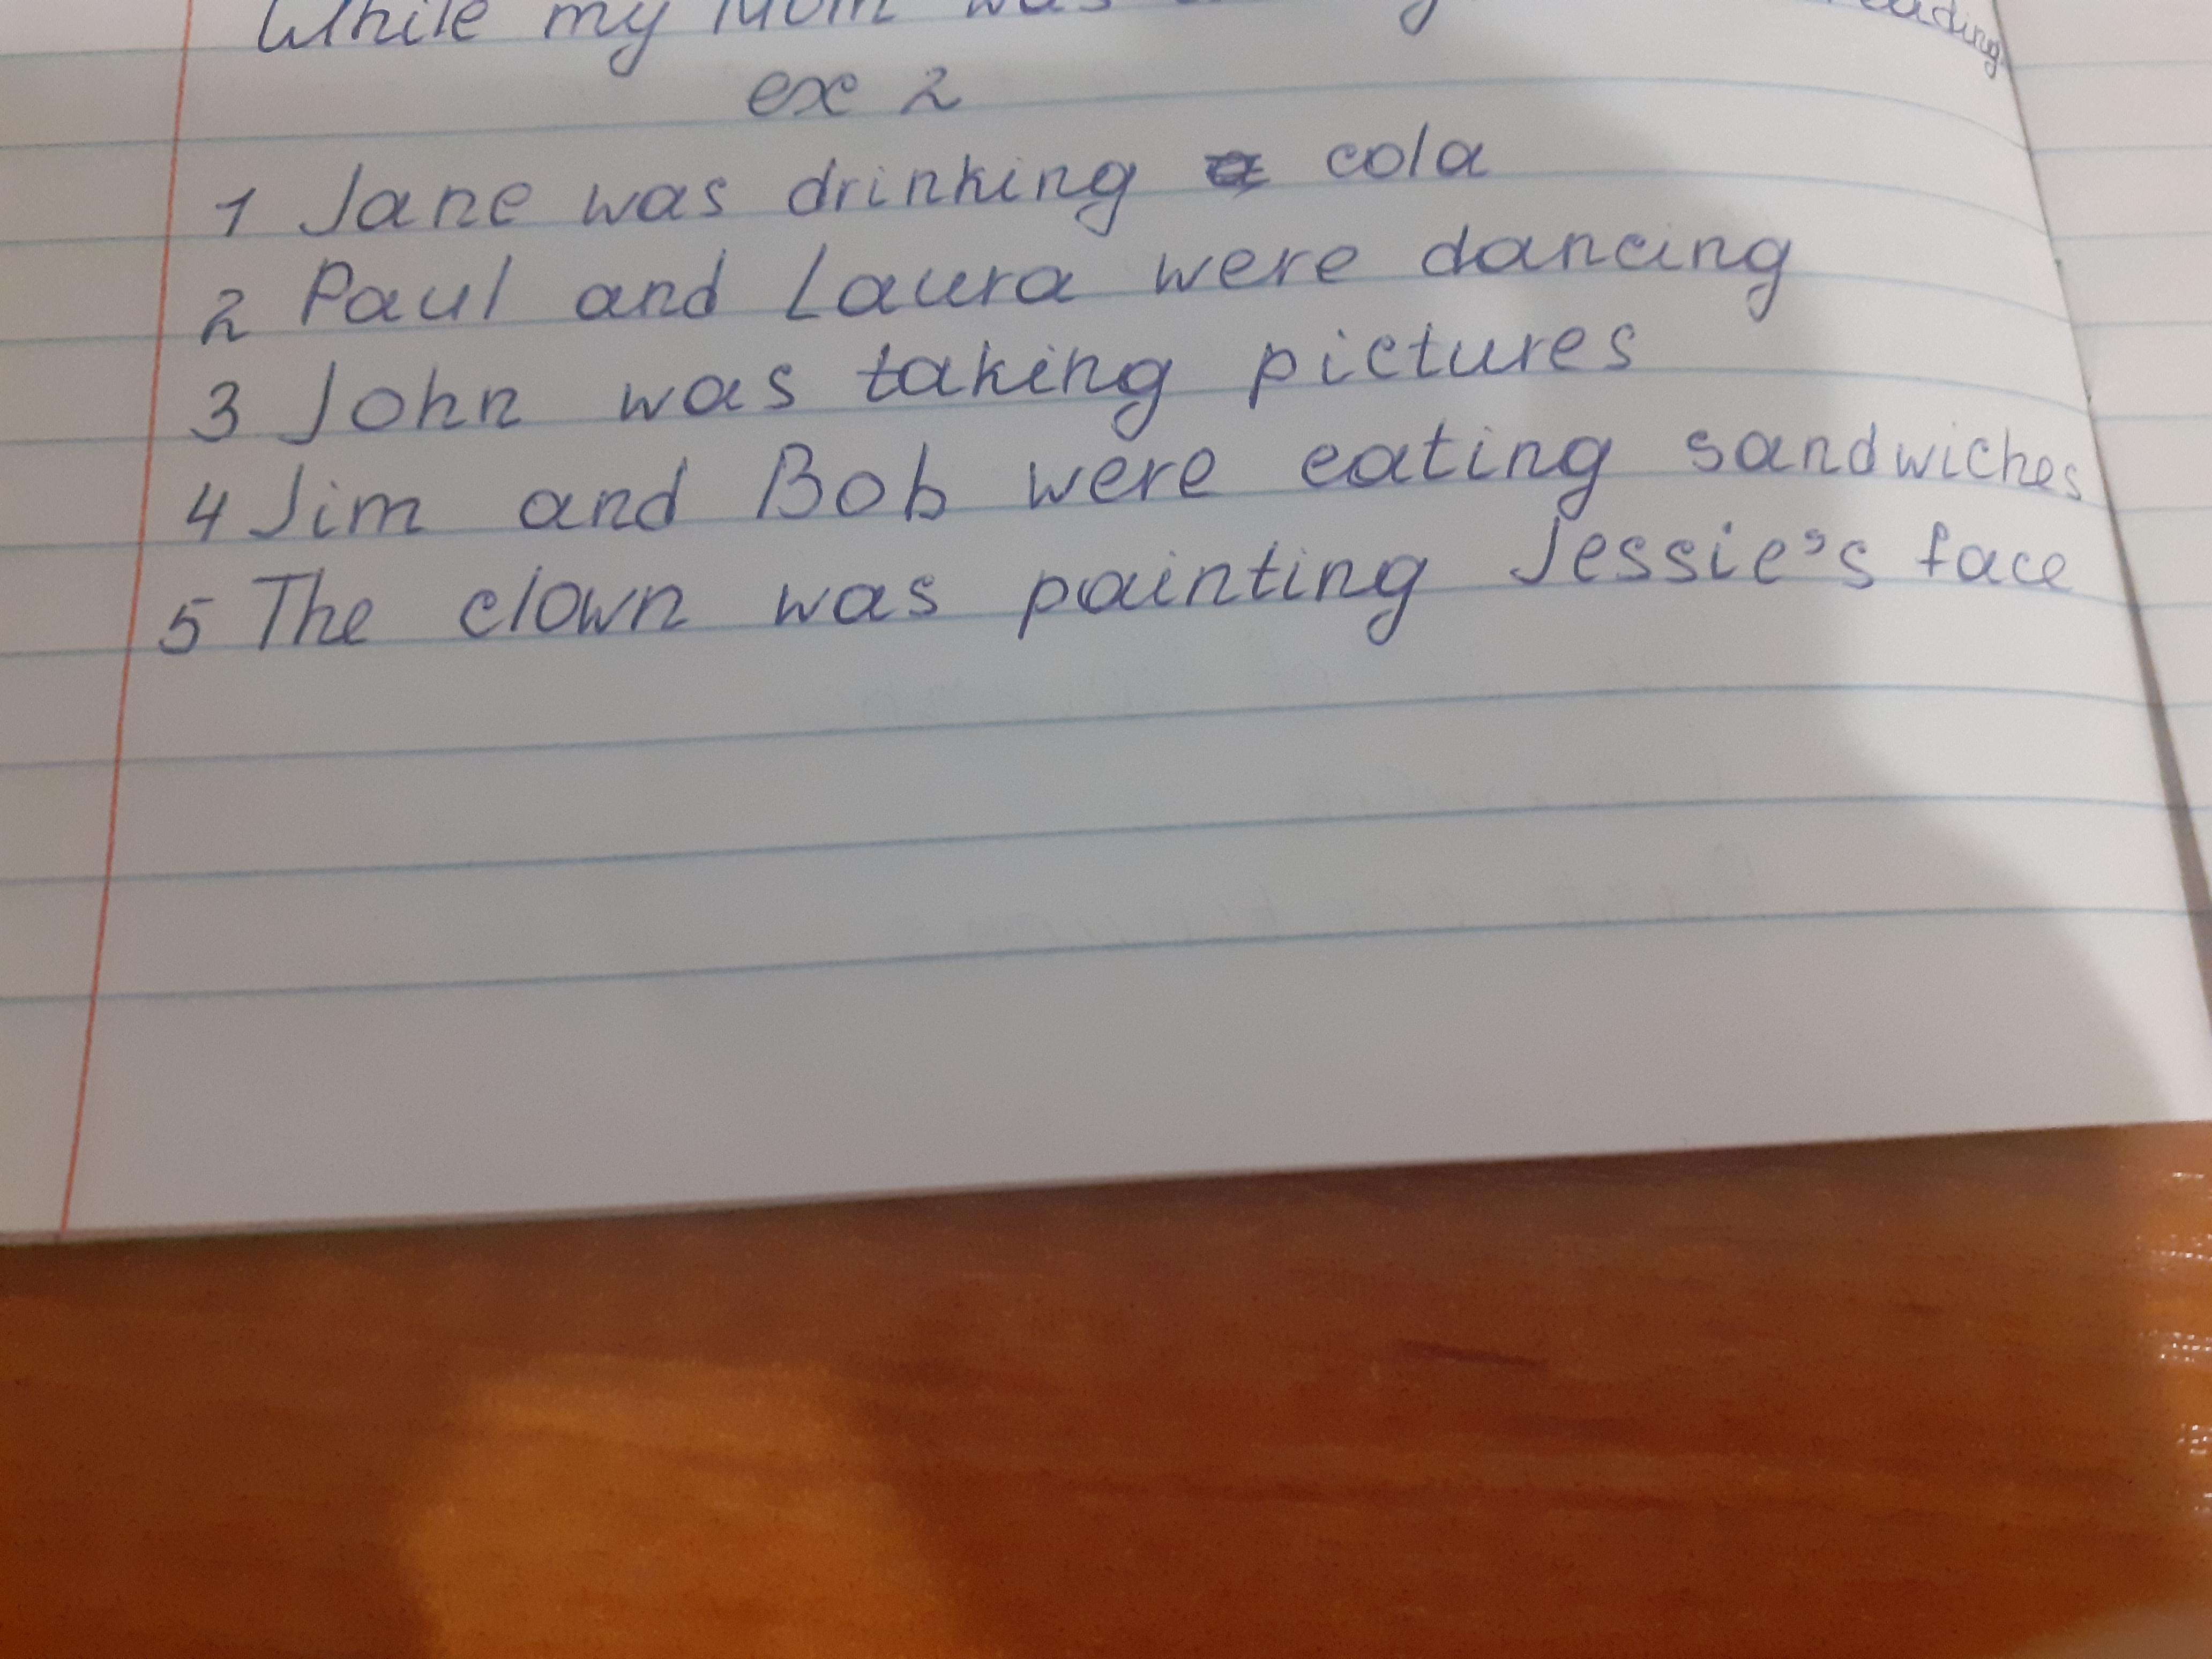 While my Mom was reading.
ex 2
1 Jane was drinking cola
2 Paul and Laura were dancing
3 John was taking pictures
4 Jim and Bob were eating sandwiches
5 The clown was painting Jessie's face